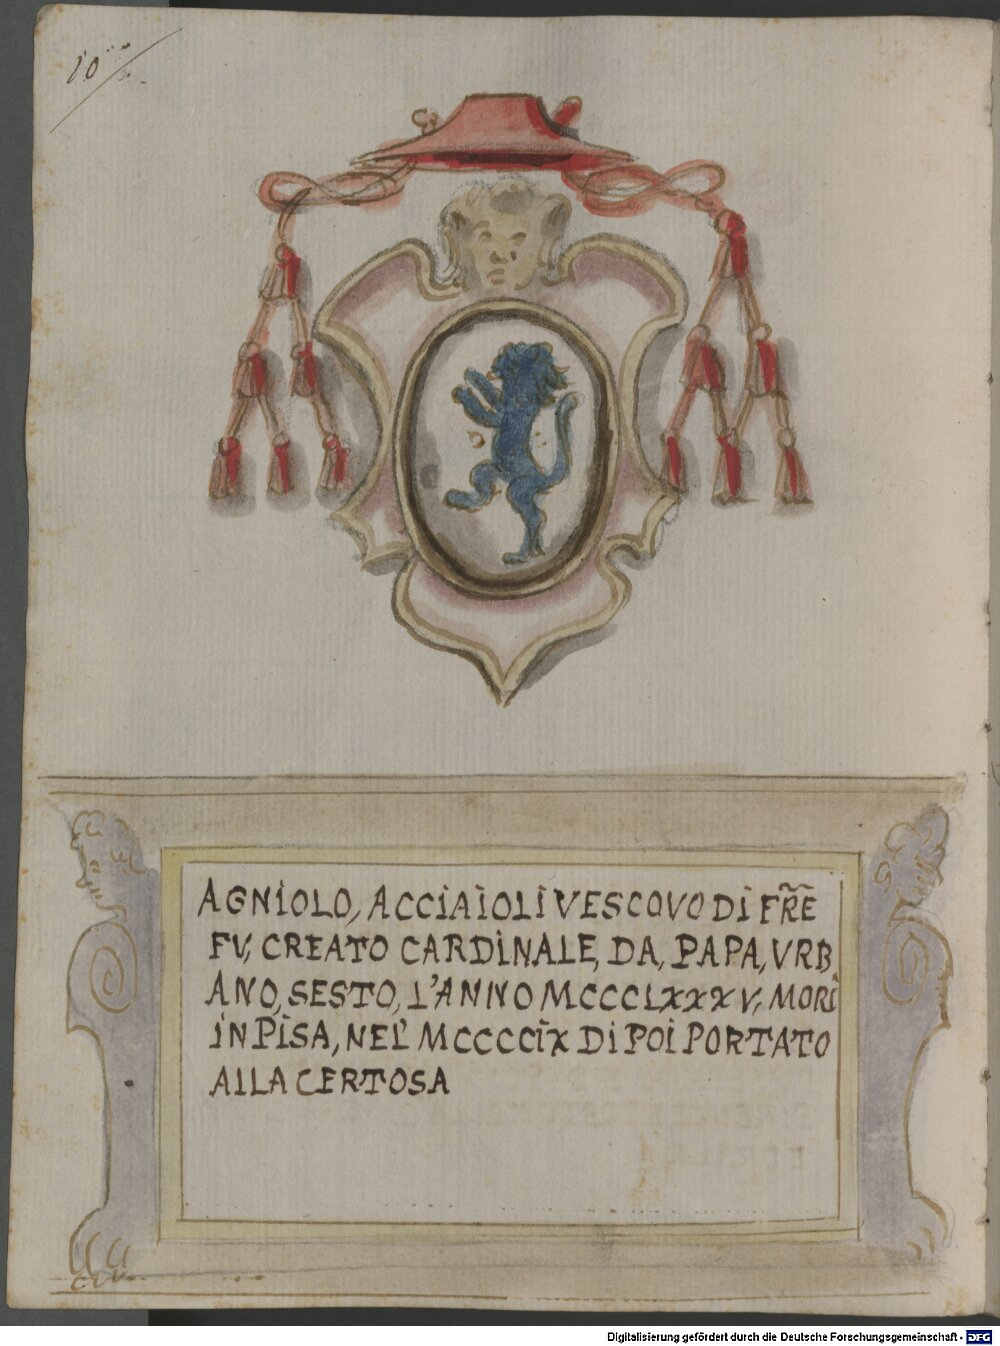 10
AGNIOLO, ACCIAIOLI VESCOVO DI FR̃E
FV, CREATO CARDINALE, DA, PAPA, VRB
ANO, SESTO, L'ANNO MCCCLXXXV, MORI
IN PISA, NEL' MCCCCIX DI POI PORTATO
ALLA CERTOSA
Digitalisierung gefördert durch die Deutsche Forschungsgemeinschaft - DFG